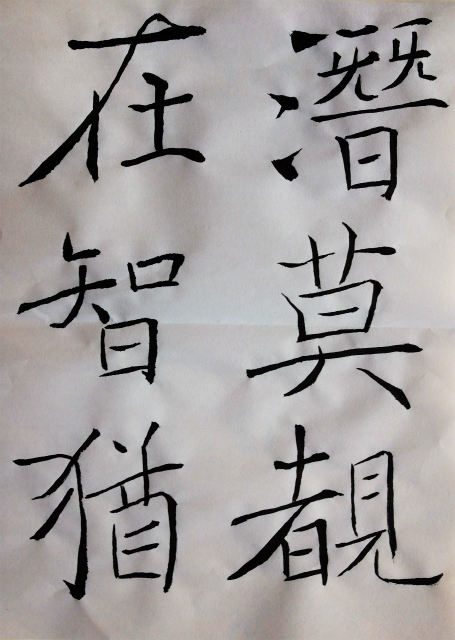 潛莫覩
在智猶